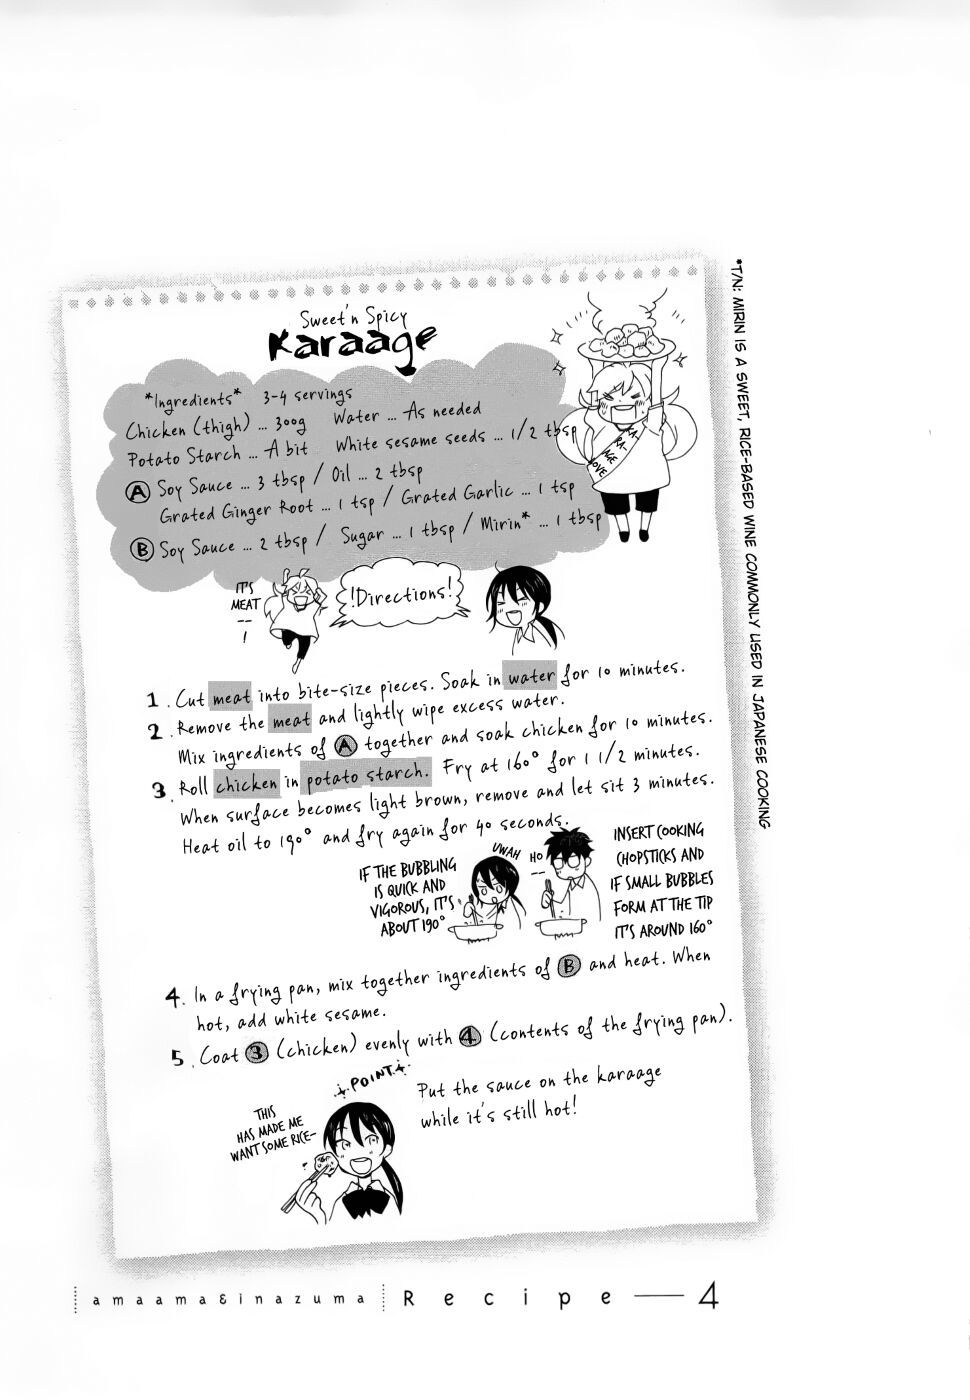 Sweet'n Spicy
Karaage
*Ingredients* 3-4 servings
Chicken (thigh) ... 300g Water ... As needed
Potato Starch ... A bit White sesame seeds ... 1/2 tbsp
Ⓐ Soy Sauce ... 3 tbsp / Oil ... 2 tbsp
Grated Ginger Root ... 1 tsp / Grated Garlic ... 1 tsp
Ⓑ Soy Sauce ... 2 tbsp / Sugar ... 1 tbsp / Mirin* ... 1 tbsp
KA-
RA-
AGE
LOVE
*T/N: MIRIN IS A SWEET, RICE-BASED WINE COMMONLY USED IN JAPANESE COOKING
IT'S
MEAT
--
!
!Directions!
1. Cut meat into bite-size pieces. Soak in water for 10 minutes.
2. Remove the meat and lightly wipe excess water.
Mix ingredients of Ⓐ together and soak chicken for 10 minutes.
3. Roll chicken in potato starch. Fry at 160° for 1 1/2 minutes.
When surface becomes light brown, remove and let sit 3 minutes.
Heat oil to 190° and fry again for 40 seconds.
IF THE BUBBLING
IS QUICK AND
VIGOROUS, IT'S
ABOUT 190°
UWAH
HO
--
INSERT COOKING
CHOPSTICKS AND
IF SMALL BUBBLES
FORM AT THE TIP
IT'S AROUND 160°
4. In a frying pan, mix together ingredients of Ⓑ and heat. When
hot, add white sesame.
5. Coat ③ (chicken) evenly with ④ (contents of the frying pan).
POINT
Put the sauce on the karaage
while it's still hot!
THIS
HAS MADE ME
WANT SOME RICE~
amaama&inazuma Recipe — 4